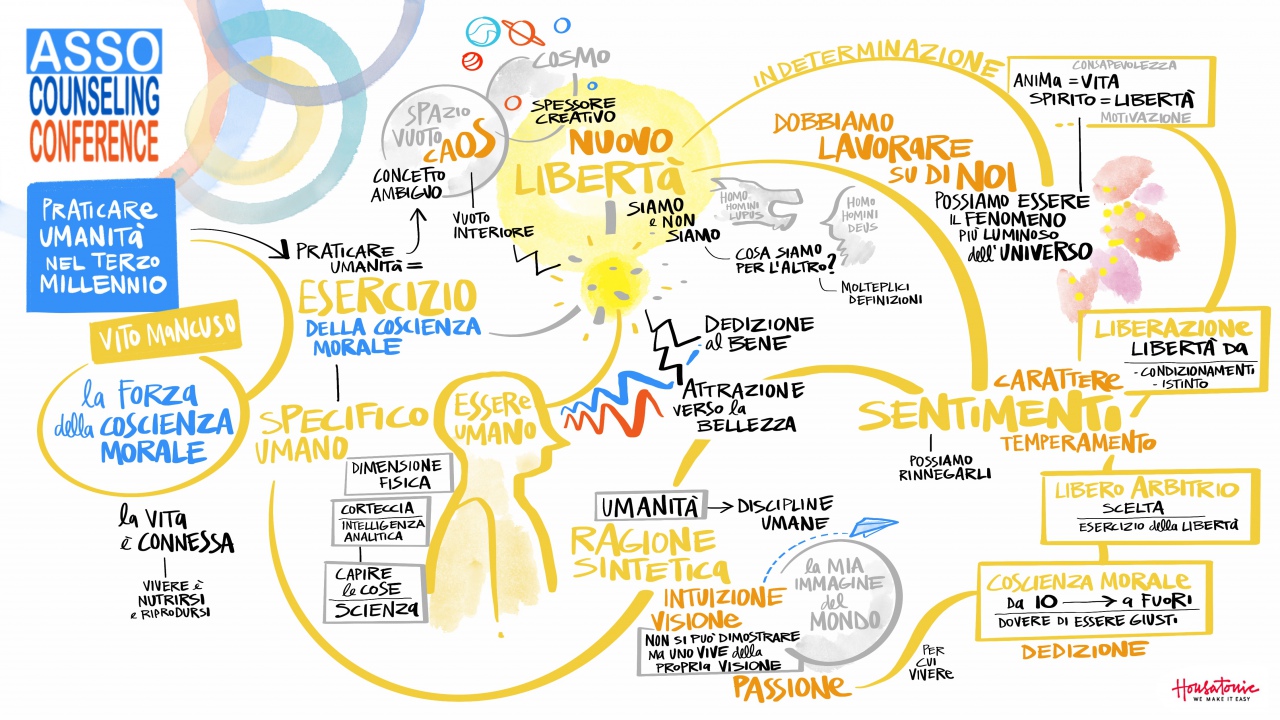 ASSO
COUNSELING
CONFERENCE
PRATICARE
UMANITÀ
NEL TERZO
MILLENNIO
VITO MANCUSO
la FORZA
della COSCIENZA
MORALE
la VITA
è CONNESSA
VIVERE è
NUTRIRSI
e RIPRODURSI
PRATICARE
UMANITÀ =
ESERCIZIO
DELLA COSCIENZA
MORALE
SPECIFICO
UMANO
DIMENSIONE
FISICA
CORTECCIA
INTELLIGENZA
ANALITICA
CAPIRE
le COSE
SCIENZA
ESSERE
UMANO
CONCETTO
AMBIGUO
SPAZIO
VUOTO
CAOS
VUOTO
INTERIORE
COSMO
SPESSORE
CREATIVO
NUOVO
LIBERTÀ
SIAMO
e NON
SIAMO
HOMO
HOMINI
LUPUS
HOMO
HOMINI
DEUS
COSA SIAMO
PER L'ALTRO?
MOLTEPLICI
DEFINIZIONI
DEDIZIONE
al BENE
ATTRAZIONE
VERSO la
BELLEZZA
UMANITÀ
DISCIPLINE
UMANE
RAGIONE
SINTETICA
INTUIZIONE
VISIONE
NON SI PUÒ DIMOSTRARE
MA UNO VIVE della
PROPRIA VISIONE
la MIA
IMMAGINE
del
MONDO
PASSIONE
PER
CUI
VIVERE
INDETERMINAZIONE
DOBBIAMO
LAVORARE
SU DI NOI
POSSIAMO ESSERE
IL FENOMENO
PIÙ LUMINOSO
dell'UNIVERSO
CONSAPEVOLEZZA
ANIMA = VITA
SPIRITO = LIBERTÀ
MOTIVAZIONE
LIBERAZIONE
LIBERTÀ DA
- CONDIZIONAMENTI
- ISTINTO
CARATTERE
SENTIMENTI
TEMPERAMENTO
POSSIAMO
RINNEGARLI
LIBERO ARBITRIO
SCELTA
ESERCIZIO della LIBERTÀ
COSCIENZA MORALE
DA IO → a FUORI
DOVERE DI ESSERE GIUSTI
DEDIZIONE
Housatonic
WE MAKE IT EASY